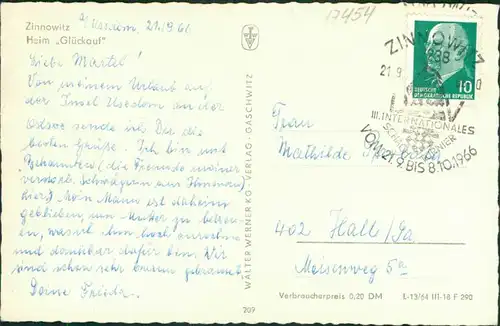 Zinnowitz
Heim „Glückauf"
Usedom, 21.9.66
Liebe Martel!
Von meinem Urlaub auf
der Insel Usedom an der
Ostsee sende ich Dir die
besten Grüße. Ich bin mit
Bekannten (die Freunde meiner
verstorb. Schwägerin aus
hier) Mein Mann ist daheim
geblieben, um Mutter zu betreu-
en, womit ihm hoch anrechne
und dankbar dafür bin. Wir
sind schon sehr braun gebrannt.
Deine Frieda.
WALTER WERNER KG · VERLAG · GASCHWITZ
209
17454
ZINNOWITZ
21.9.
III. INTERNATIONALES
VOM 21.9. BIS 8.10.1966
DEUTSCHE
DEMOKRATISCHE REPUBLIK
10
Frau
Mathilde
402 Halle/Sa
Meisenweg 5a
Verbraucherpreis 0,20 DM
L-13/64 III-18 F 290